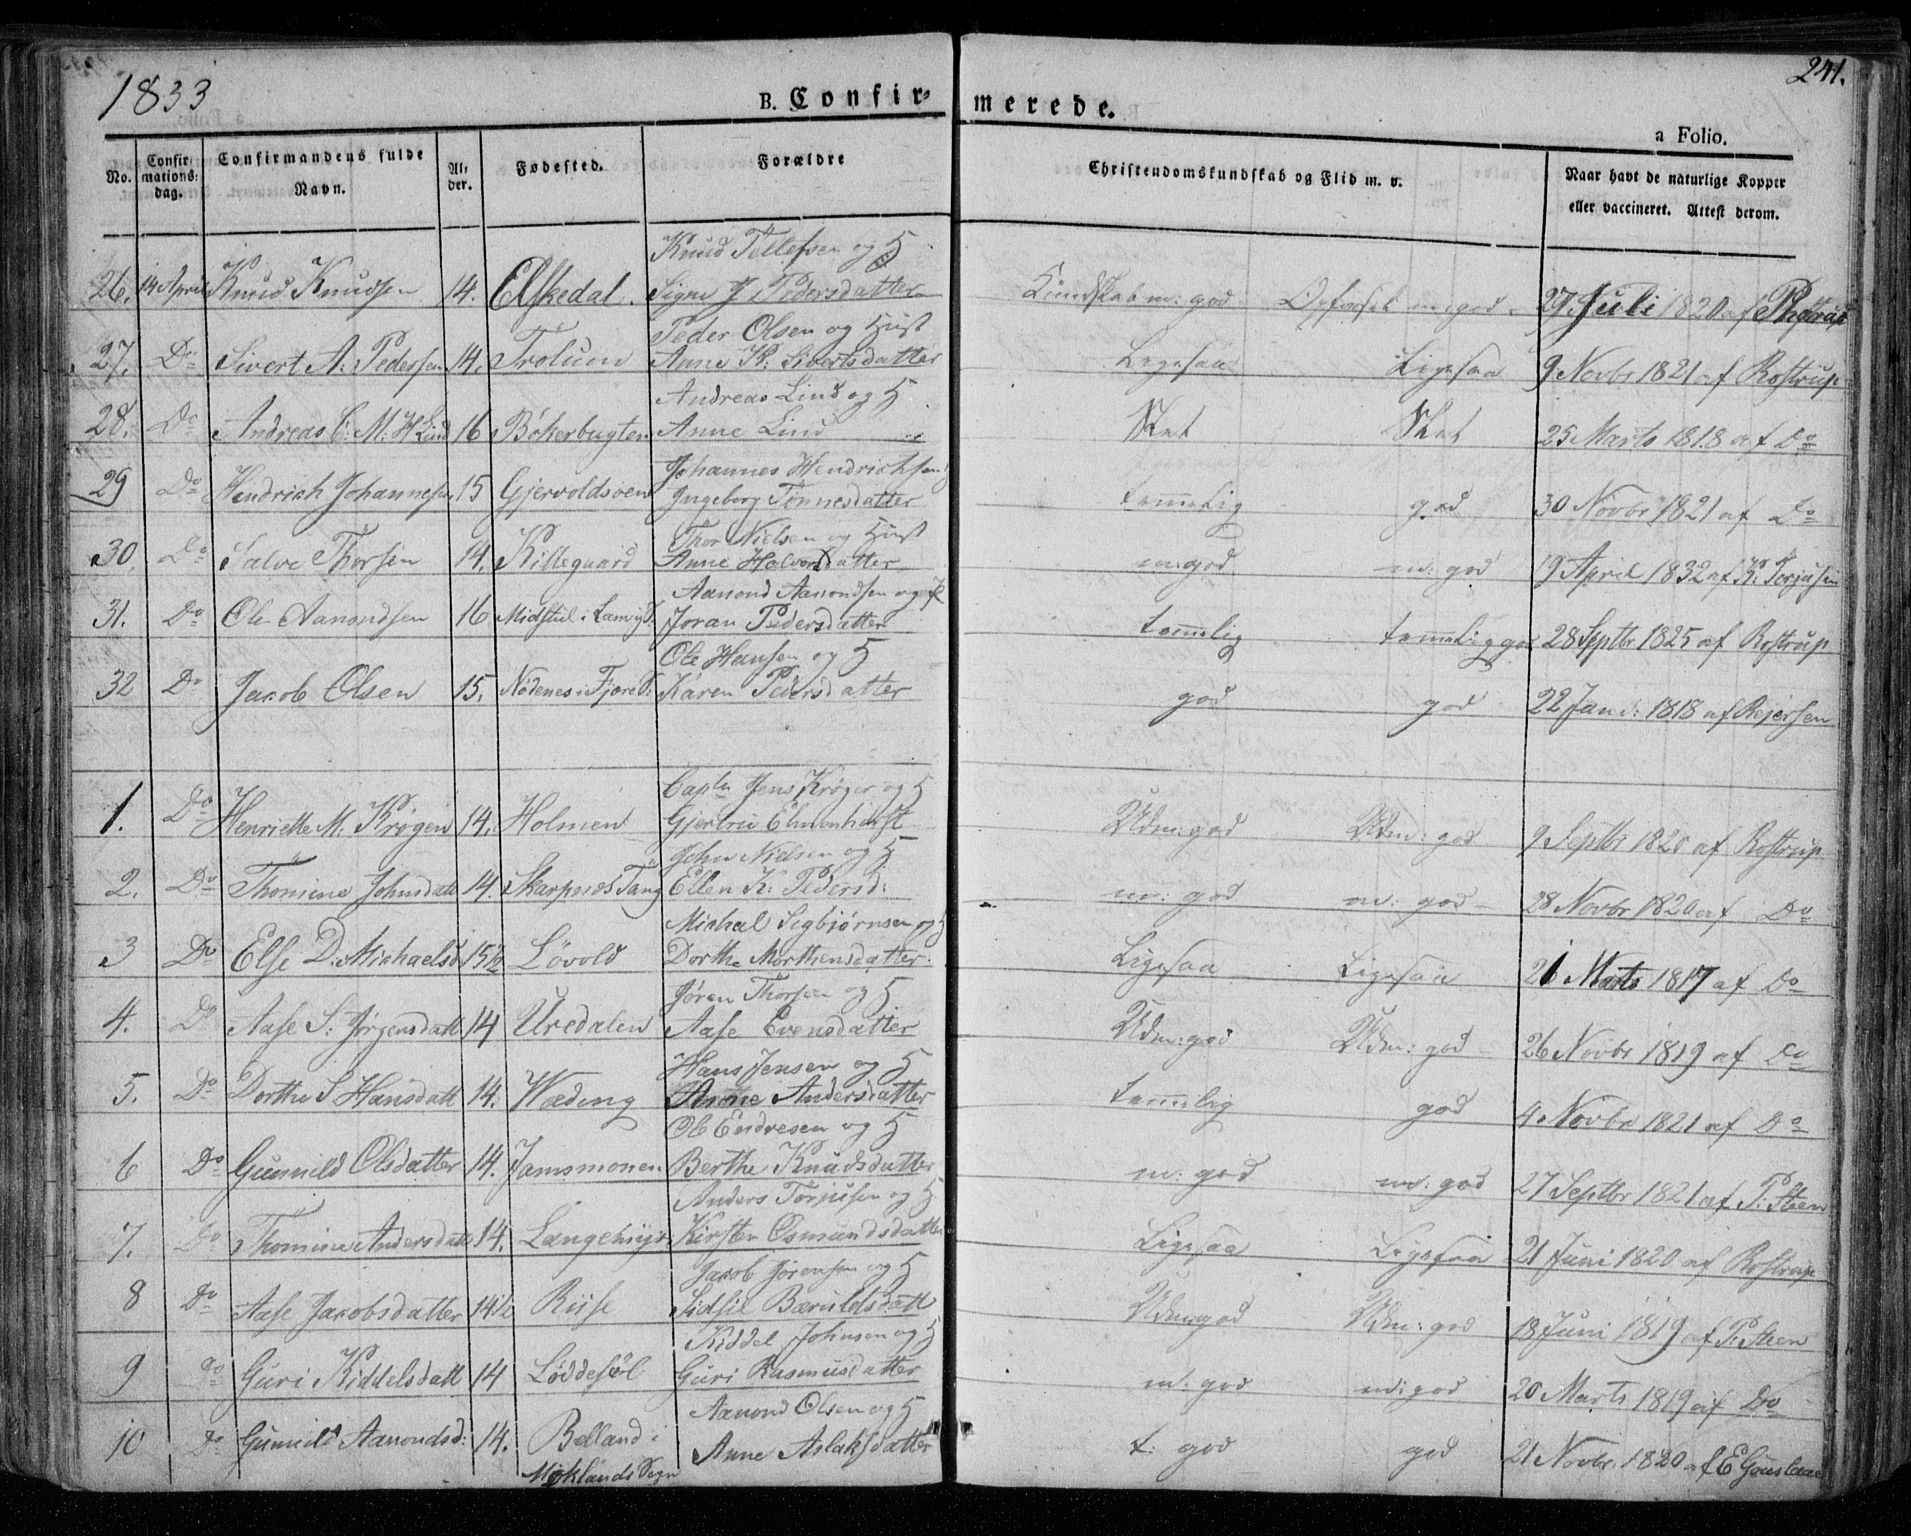 1833
B. Confir-
merede.
241.
a Folio.
No.
Confir-
mations-
dag.
Confirmandens fulde
Navn.
Al-
der.
Fødested.
Forældre
Christendomskundskab og Flid m. v.
Naar havt de naturlige Kopper
eller vaccineret. Attest derom.
Knud Tellefsen og H
26. 14 April Knud Knudsen 14. Elskedal. Signe J Pedersdatter Kundskab m: god Opførsel m: god. 27. Juli 1820 af
Peder Olsen og Hust
27. Do Sivert A: Pedersen 14. Trolum Anne K: Sivertsdatter Ligesaa Ligesaa 9 Novbr 1821 af Rostrup
Andreas Lind og H
28. Do Andreas C: M: H Lind 16 Bökerbugten Anne Lind Slet Slet 25 Marts 1818 af Do
Johannes Hendrichsen
29 Do Hindrich Johannesen 15 Gjervoldsöen Ingeborg Tönnesdatter temelig god 30 Novbr 1821 af Do
Thor Nielsen og Hust
30. Do Salve Thorsen 14. Killegaard Anne Halvorsdatter m: god m: god 19 April 1832 af
Aanond Aanondsen og H
31. Do Ole Aanondsen 16 Joran Pedersdatter temelig temelig god 28 Septbr 1825 af Rostrup
Ole Hansen og H
32 Do Jacob Olsen 15. Nödenes i Fjære S: Karen Pedersdatter god god 22 Janr: 1818 af Rejersen
Captn Jens Krøger og H
1. Do Henriette M: Krøger 14. Holmen Gjertru Elmenhorst Udm: god Udm: god 9 Septbr 1820 af Rostrup
John Nielsen og H
2. Do Thomine Johnsdatt 14. Skarpnæs Tang Ellen K: Pedersd: m: god m: god 28 Novbr 1820 af Do
Michael Sigbjørnsen og H
3 Do Else D: Michaelsd 15½ Løvold Dorthe Morthensdatter Ligesaa Ligesaa 21 Marts 1817 af Do
Jören Thorsen og H
4. Do Aase S: Jörgensdatt 14 Uredalen Aase Evensdatter Udm: god Udm: god 26 Novbr 1819 af Do
Hans Jensen og H
5. Do Dorthe S Hansdatt 14. Wæding Anne Andersdatter temelig god 4 Novbr 1821 af Do
Ole Endresen og H
6 Do Gunnild Olsdatter 14. Jamsmonen Berthe Knudsdatter m: god m: god 27 Septbr 1821 af P: Steen
Anders Torjusen og H
7. Do Thomine Andersdatt 14. Langemyr Kirsten Osmundsdatter Ligesaa Ligesaa 21 Juni 1820 af Rostrup
Jacob Jørensen og H
8 Do Aase Jacobsdatter 14½ Riise Sidsil Bæruldsdatt Udm: god Udm: god 18 Juni 1819 af P: Steen
Kiddel Johnsen og H
9 Do Guri Kiddelsdatt 14 Løddesøl Guri Rasmusdatter m: god m: god 20 Marts 1819 af Do
Aanond Olsen og H
10 Do Gunnild Aanondsd: 14. Belland i Anne Aslaksdatter t: god god 21 Novbr: 1820 af
Moklands Sogn